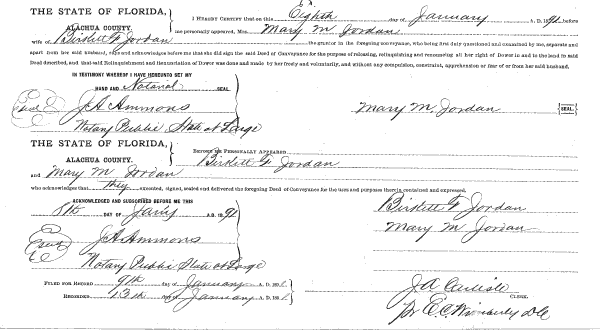 THE STATE OF FLORIDA,
ALACHUA COUNTY.
I HEREBY CERTIFY that on this Eighth day of January A. D. 1891, before
me personally appeared, Mrs. Mary M Jordan
wife of Birskett F Jordan the grantor in the foregoing conveyance, who being first duly questioned and examined by me, separate and
apart from her said husband, says and acknowledges before me that she did sign the said Deed or Conveyance for the purpose of releasing, relinquishing and renouncing all her right of Dower in and to the land in said
Deed described, and that said Relinquishment and Renunciation of Dower was done and made by her freely and voluntarily, and without any compulsion, constraint, apprehension or fear of or from her said husband.
IN TESTIMONY WHEREOF I HAVE HEREUNTO SET MY
HAND AND Notarial SEAL.
Seal J A Ammons
Notary Public State at Large
Mary M, Jordan SEAL.
THE STATE OF FLORIDA,
ALACHUA COUNTY.
BEFORE ME PERSONALLY APPEARED
Birskett F Jordan
and Mary M Jordan
who acknowledges that they executed, signed, sealed and delivered the foregoing Deed of Conveyance for the uses and purposes therein contained and expressed.
ACKNOWLEDGED AND SUBSCRIBED BEFORE ME THIS
8th DAY OF Jany A. D. 1891
Seal J A Ammons
Notary Public State at Large
Birskett F Jordan
Mary M, Jordan
FILED FOR RECORD 9th day of January A. D. 1891
RECORDED 13th day of January A. D. 1891
J. A. Carlisle CLERK.
Pr E. C. Wimberly D C